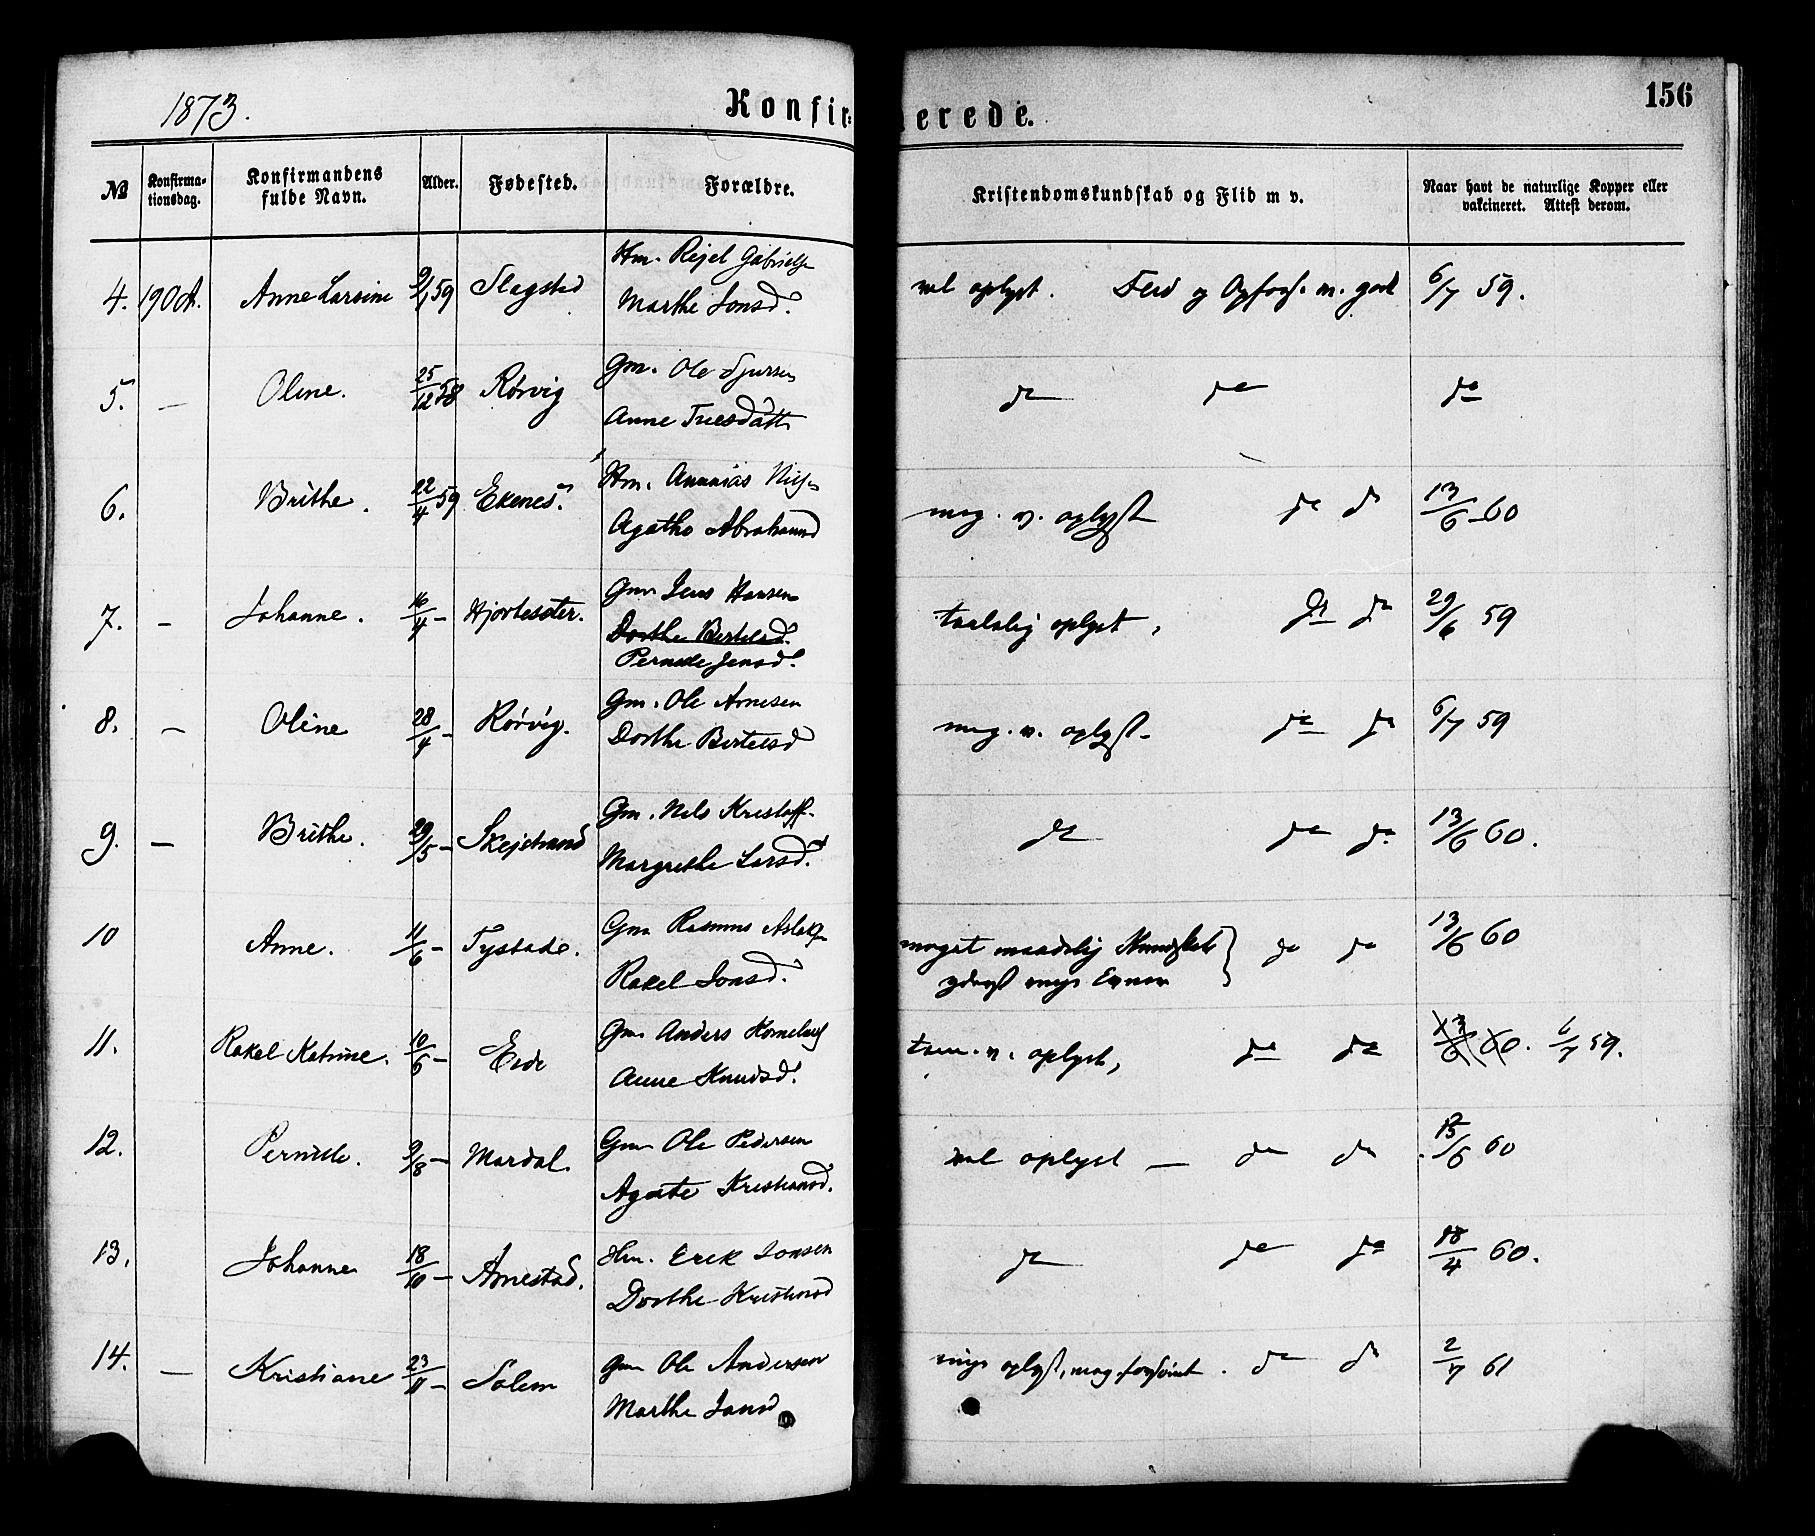 1873. Konfirmerede. 156
№ Konfirmationsdag. Konfirmandens fulde Navn. Alder. Fødested. Forældre. Kristendomskundskab og Flid m v. Naar havt de naturlige Kopper eller vakcineret. Attest derom.
Hm. Rejel Gabriels
4. 19 Oct. Anne Larsine 9/1 59 Slagstad Marthe Jonsd. vel oplyst. Flid og Opførs. m. godt 6/7 59.
Gm. Ole Sjursen
5. — Oline. 25/12 58 Rørvig do do do
Anne
Hm. Ananias Nils
6. Brithe. 22/4 59 Ekenes. meg. v. oplyst do do 13/6 60
Agathe Abrahamsd
Gm Jens Hansen
7. — Johanne. 16/4 — Hjortesæter. taalelig oplyst, do do 29/6 59
Dorthe Bertelsd.
Pernille Jensd.
Gm. Ole Arnesen
8. — Oline 28/4 — Rørvig. meg. v. oplyst — do do 6/7 59
Dorthe Bertelsd
Gm. Nils Kristoff.
9. — Brithe. 29/5 — Skejstrand do do do 13/6 60.
Margrethe Larsd.
Gm Rasmus Aslaks
10 Anne. 11/6 — Tystade. meget maadelig Kundskab do do 13/6 60
Rakel Jonsd. Evner
Gm Anders Kornelius
11. Rakel Katrine. 10/6 — Eide tem. v. oplyst, do do 13/6 60. 6/7 59.
Anne Knudsd.
Gm Ole Pedersen
12. Pernille. 9/8 — Mardal. vel oplyst — do do 13/6 60
Agate Kristiansd.
Hm. Erik Jonsen
13. Johanne 18/10 — Arnestad. do do do 18/4 60.
Dorthe Kristensd
Gm Ole Andersen
14. — Kristiane 23/11 — Solem oplyst, meg. forsømt. do do 2/7 61
Marthe Jansd